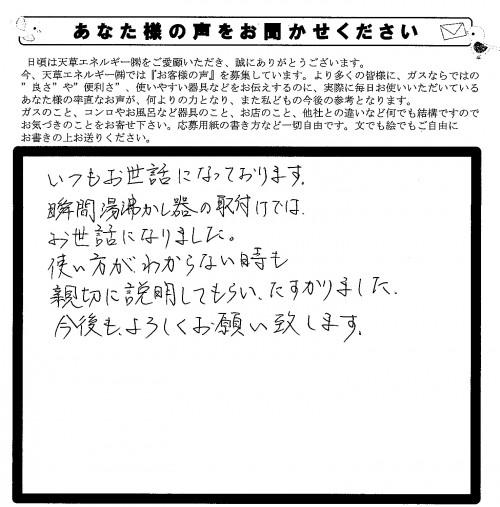 あなた様の声をお聞かせください
日頃は天草エネルギー㈱をご愛顧いただき、誠にありがとうございます。
今、天草エネルギー㈱では『お客様の声』を募集しています。より多くの皆様に、ガスならではの
"良さ"や"便利さ"、使いやすい器具などをお伝えするのに、実際に毎日お使いいただいている
あなた様の率直なお声が、何よりの力となり、また私どもの今後の参考となります。
ガスのこと、コンロやお風呂など器具のこと、お店のこと、他社との違いなど何でも結構ですので
お気づきのことをお寄せ下さい。応募用紙の書き方など一切自由です。文でも絵でもご自由に
お書きの上お送りください。
いつもお世話になっております。
瞬間湯沸かし器の取付けでは、
お世話になりました。
使い方がわからない時も
親切に説明してもらい、たすかりました。
今後も、よろしくお願い致します。